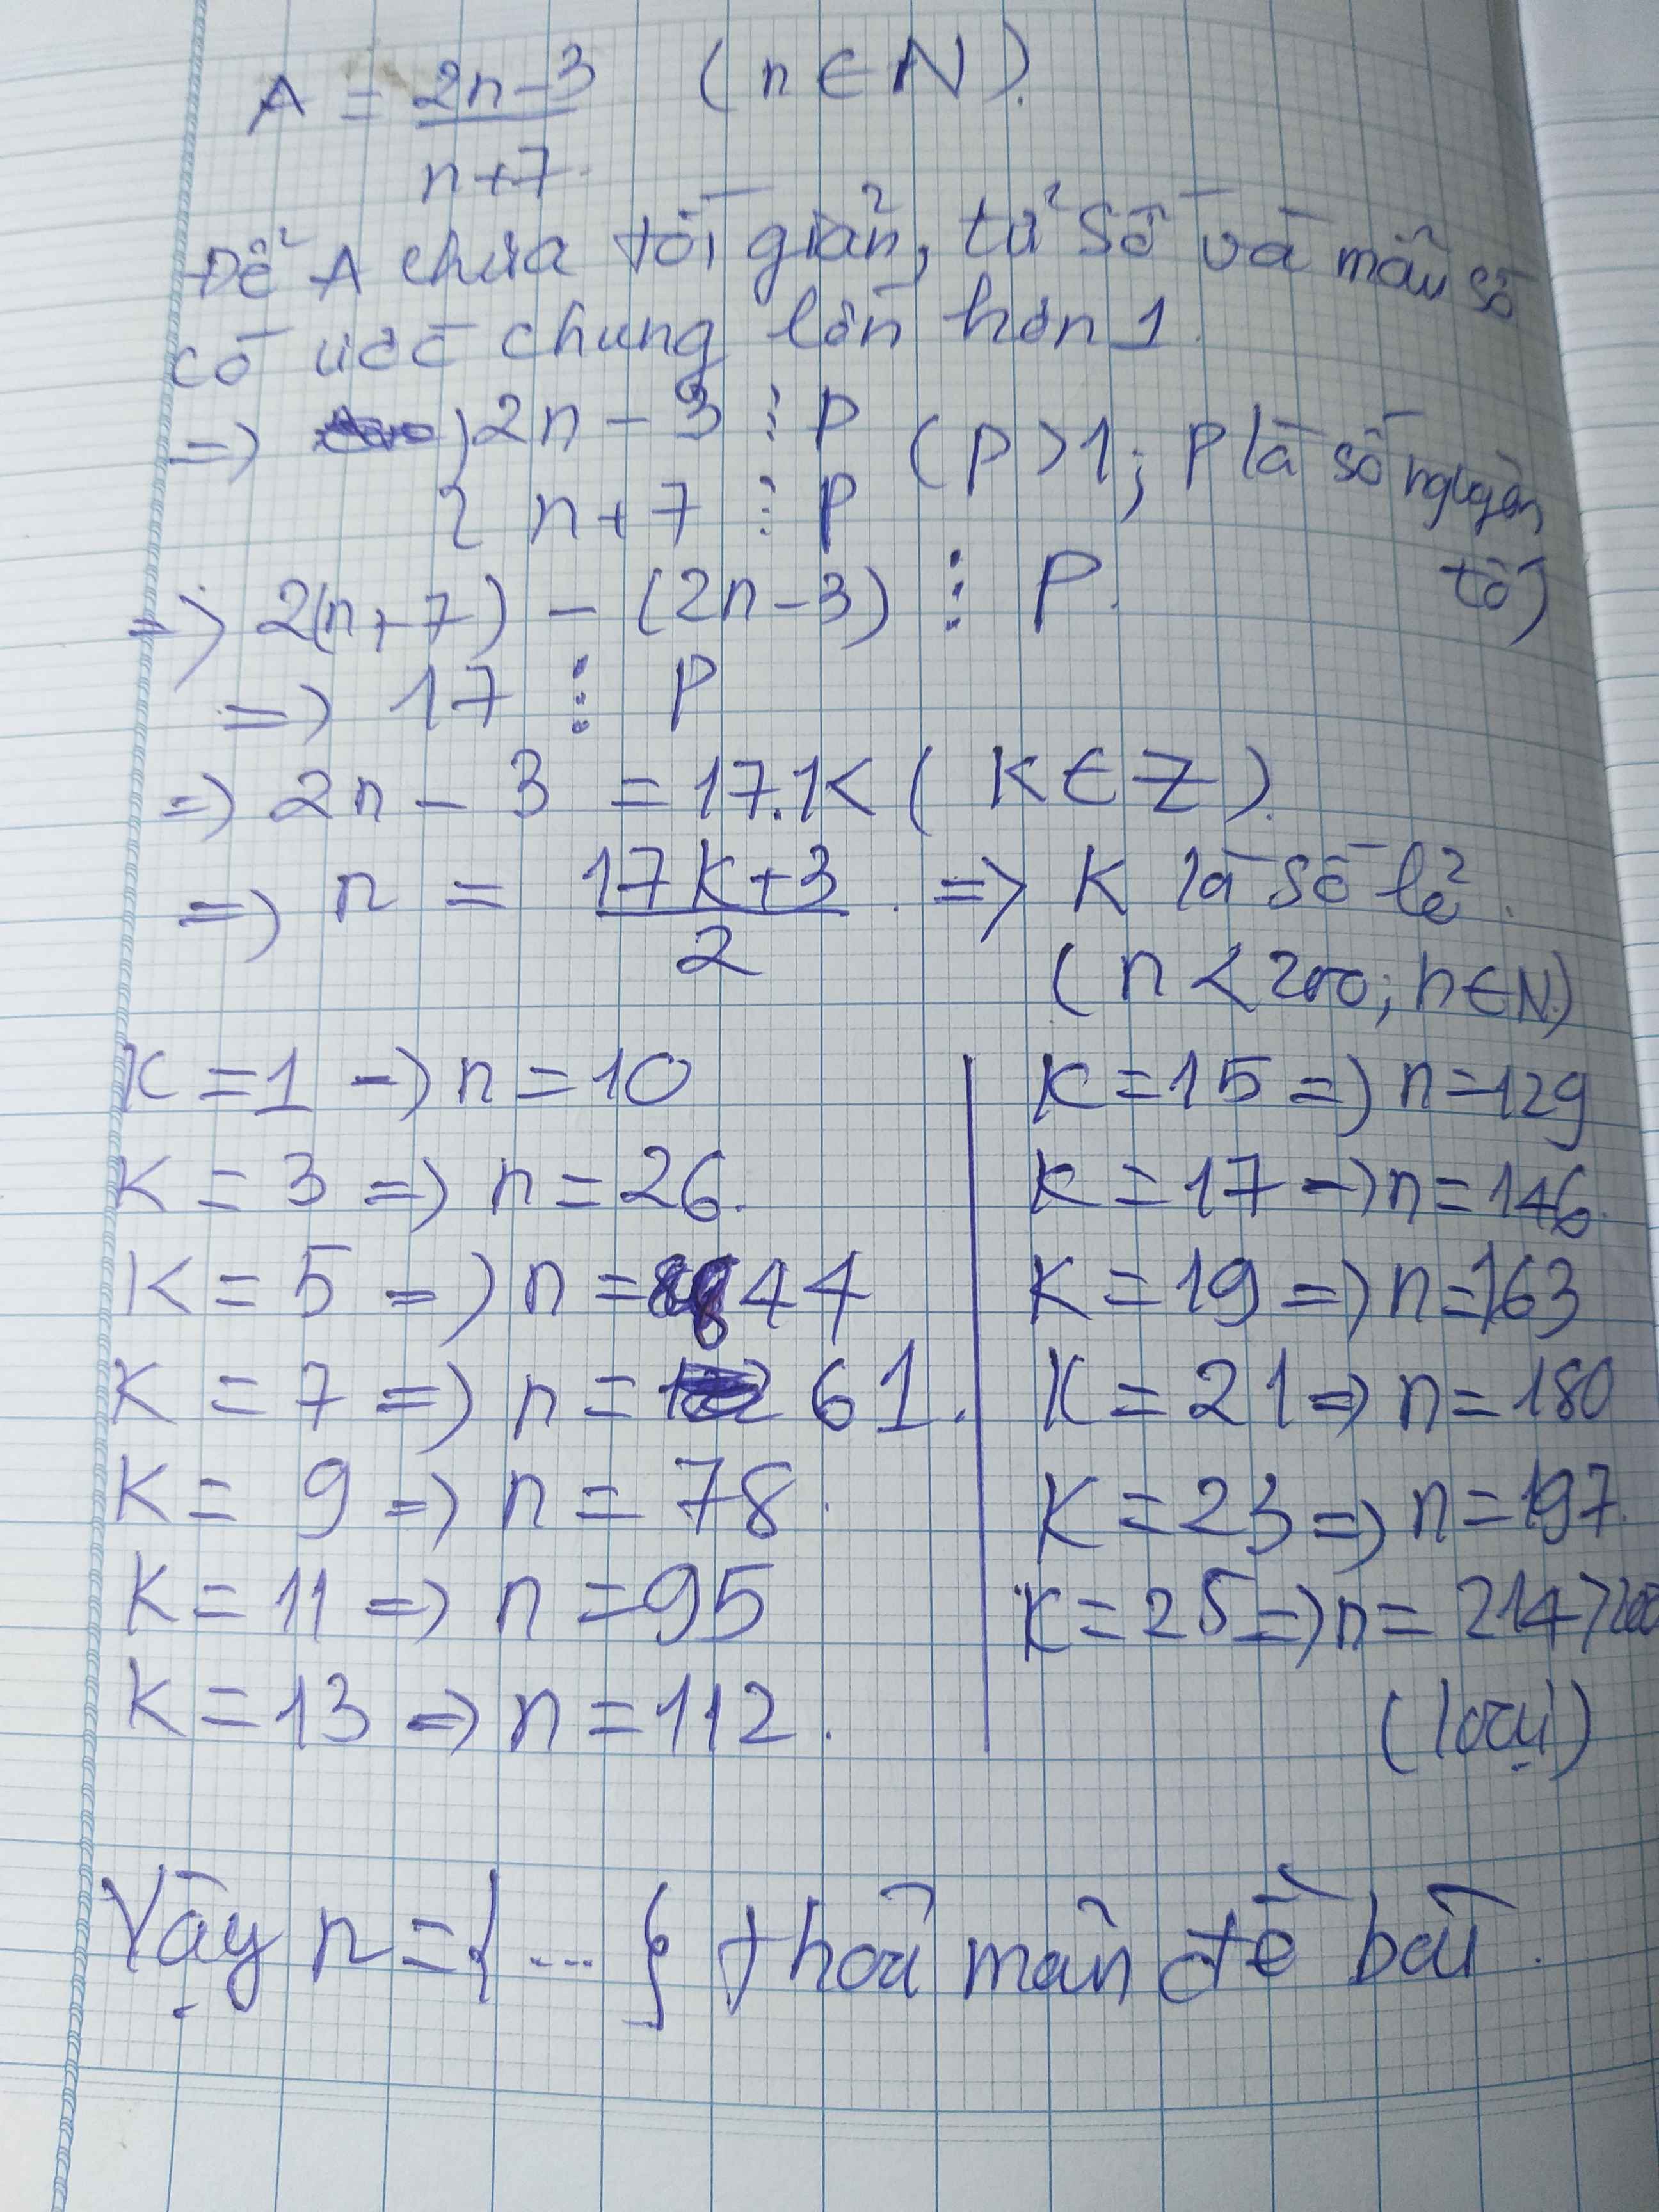 A = \frac{2n-3}{n+7} (n ∈ N).
Để A chưa tối giản, tử số và mẫu số
có ước chung lớn hơn 1.
=> { 2n - 3 ⋮ P
{ n + 7 ⋮ P (P > 1; P là số nguyên tố)
=> 2(n+7) - (2n-3) ⋮ P.
=> 17 ⋮ P
=> 2n - 3 = 17.K (K ∈ Z).
=> n = \frac{17K+3}{2} => K là số lẻ.
(n < 200; n ∈ N.)
K = 1 -> n = 10
K = 3 => n = 26.
K = 5 => n = 44
K = 7 => n = 61.
K = 9 => n = 78.
K = 11 => n = 95
K = 13 => n = 112.
K = 15 => n = 129
K = 17 -> n = 146.
K = 19 => n = 163
K = 21 => n = 180
K = 23 => n = 197.
K = 25 => n = 214 > 200
(loại)
Vậy n = {...} thoả mãn đề bài.